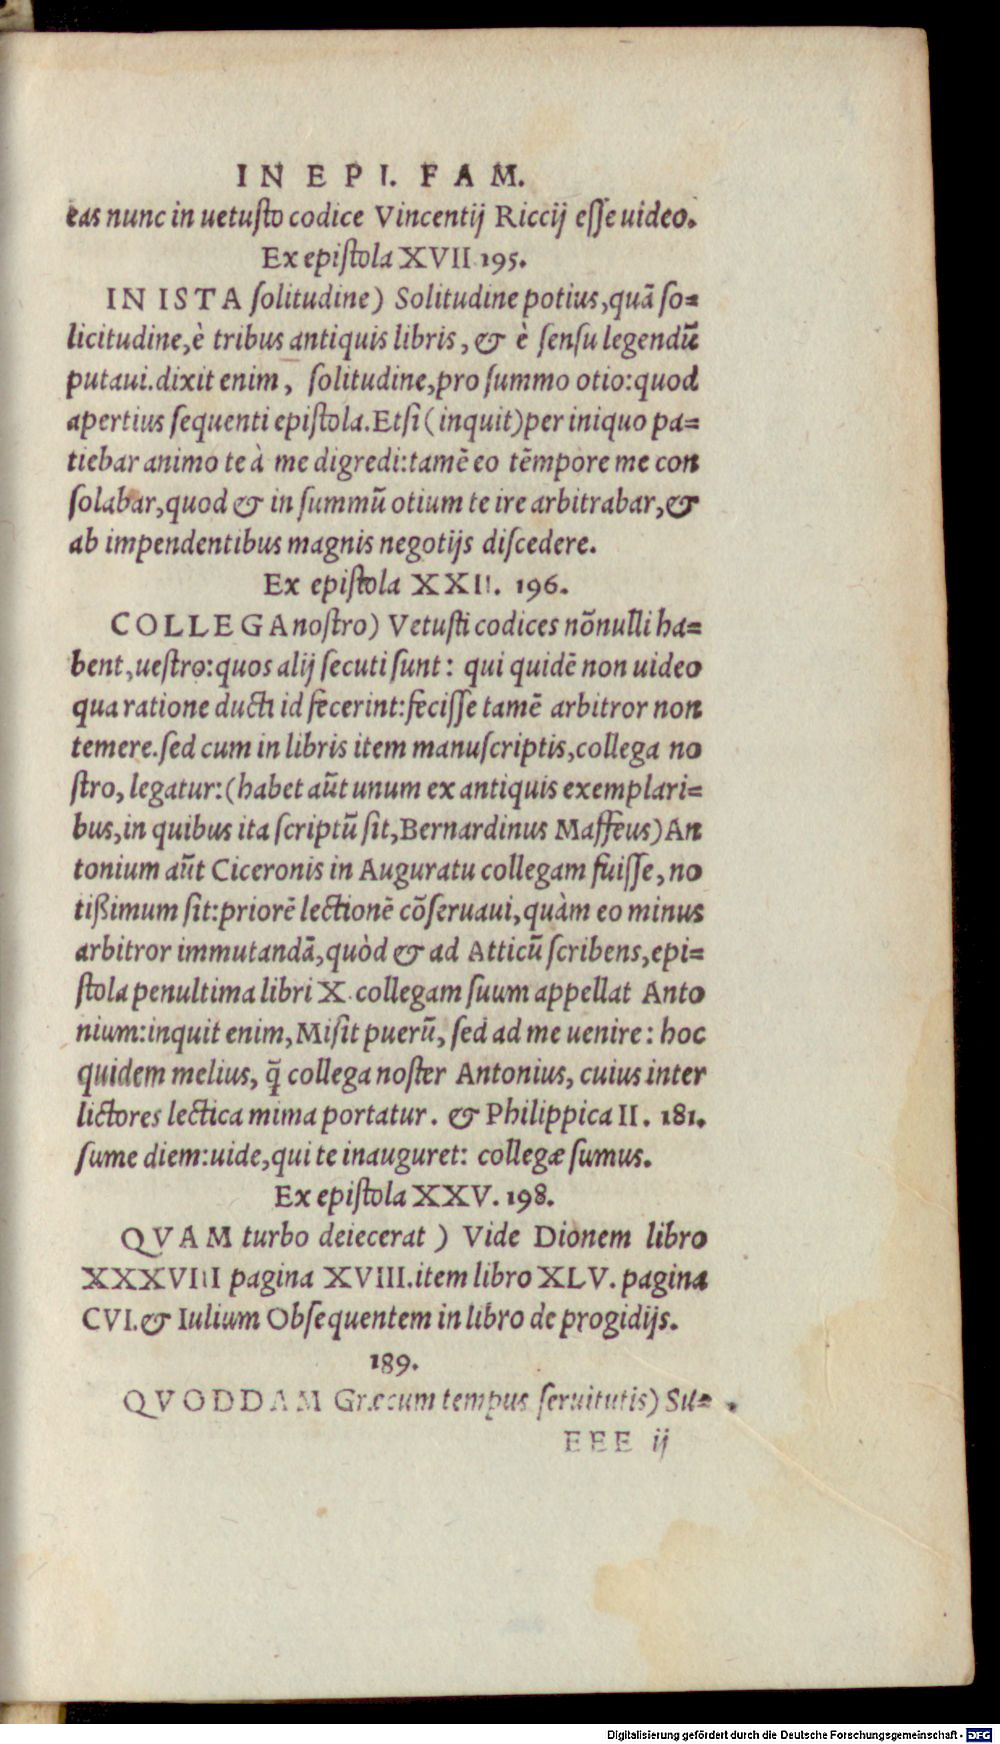 IN EPI. FAM.
eas nunc in uetusto codice Vincentij Riccij esse uideo.
Ex epistola XVII. 195.
IN ISTA solitudine) Solitudine potius, quā so=
licitudine, è tribus antiquis libris, & è sensu legendū
putaui. dixit enim, solitudine, pro summo otio: quod
apertius sequenti epistola. Etsi (inquit) per iniquo pa=
tiebar animo te à me digredi: tamē eo tēmpore me con
solabar, quod & in summū otium te ire arbitrabar, &
ab impendentibus magnis negotijs discedere.
Ex epistola XXII. 196.
COLLEGA nostro) Vetusti codices nōnulli ha=
bent, uestro: quos alij secuti sunt: qui quidē non uideo
qua ratione ducti id fecerint: fecisse tamē arbitror non
temere. sed cum in libris item manuscriptis, collega no
stro, legatur: (habet aūt unum ex antiquis exemplari=
bus, in quibus ita scriptū sit, Bernardinus Maffeus) An
tonium aūt Ciceronis in Auguratu collegam fuisse, no
tißimum sit: priorē lectionē cōseruaui, quàm eo minus
arbitror immutandā, quòd & ad Atticū scribens, epi=
stola penultima libri X. collegam suum appellat Anto
nium: inquit enim, Misit puerū, sed ad me uenire: hoc
quidem melius, q̄ collega noster Antonius, cuius inter
lictores lectica mima portatur. & Philippica II. 181.
sume diem: uide, qui te inauguret: collegæ sumus.
Ex epistola XXV. 198.
QVAM turbo deiecerat) Vide Dionem libro
XXXVIII pagina XVIII. item libro XLV. pagina
CVI. & Iulium Obsequentem in libro de progidijs.
189.
QVODDAM Græcum tempus seruitutis) Sil=
EEE ij
Digitalisierung gefördert durch die Deutsche Forschungsgemeinschaft - DFG